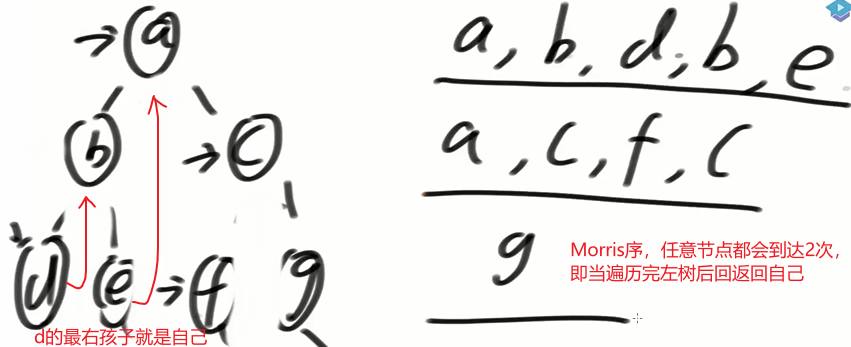 a
b
c
d
e
f
g
d的最右孩子就是自己
a, b, d, b, e
a, c, f, c
g
Morris序，任意节点都会到达2次，
即当遍历完左树后回返回自己